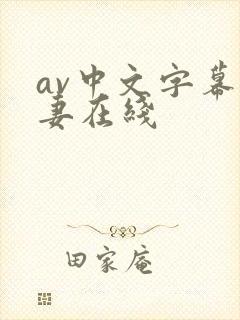 av中文字幕
妻在线
田家庵